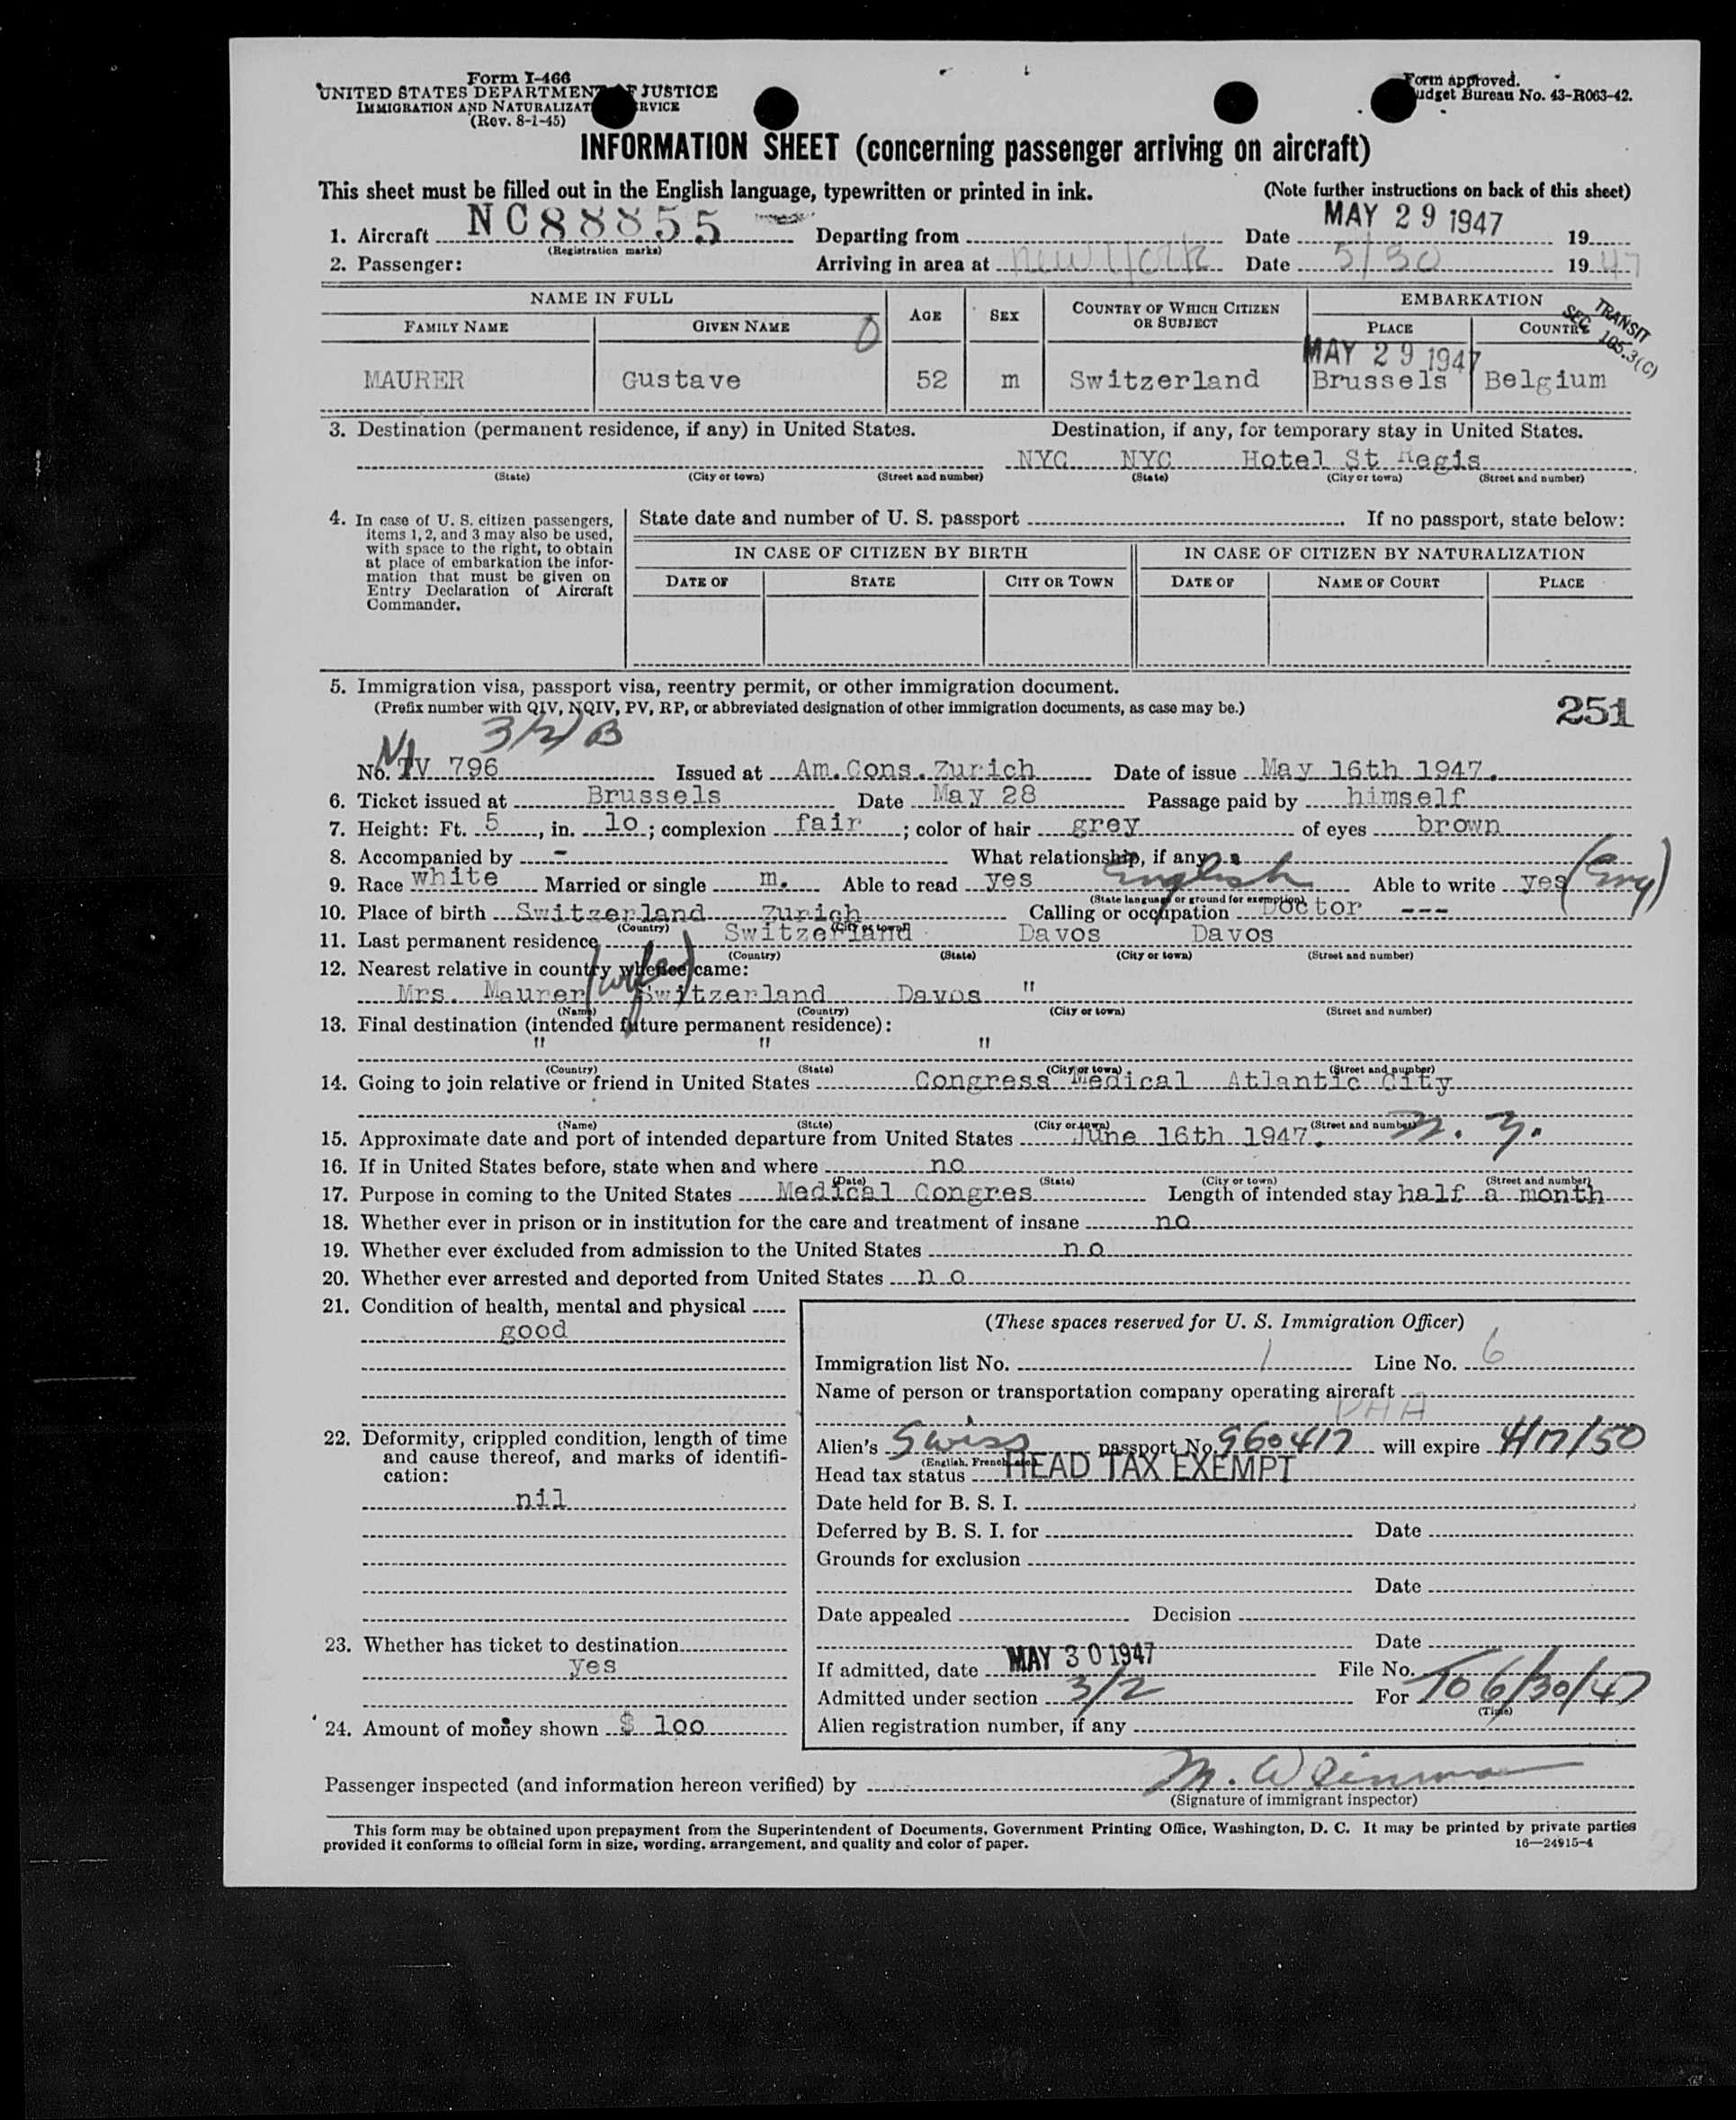 Form I-466
UNITED STATES DEPARTMENT OF JUSTICE
IMMIGRATION AND NATURALIZATION SERVICE
(Rev. 8-1-45)
Form approved.
Budget Bureau No. 43-R063-42.
INFORMATION SHEET (concerning passenger arriving on aircraft)
This sheet must be filled out in the English language, typewritten or printed in ink. (Note further instructions on back of this sheet)
1. Aircraft NC88855 Departing from Date MAY 29 1947 19
(Registration marks)
2. Passenger: Arriving in area at New York Date 5/30 1947
NAME IN FULL AGE SEX COUNTRY OF WHICH CITIZEN OR SUBJECT EMBARKATION
FAMILY NAME GIVEN NAME PLACE COUNTRY
0
TRANSIT
SEC. 105.3(C)
MAY 29 1947
MAURER Gustave 52 m Switzerland Brussels Belgium
3. Destination (permanent residence, if any) in United States. Destination, if any, for temporary stay in United States.
NYC NYC Hotel St Regis
(State) (City or town) (Street and number) (State) (City or town) (Street and number)
4. In case of U. S. citizen passengers, items 1, 2, and 3 may also be used, with space to the right, to obtain at place of embarkation the information that must be given on Entry Declaration of Aircraft Commander.
State date and number of U. S. passport If no passport, state below:
IN CASE OF CITIZEN BY BIRTH IN CASE OF CITIZEN BY NATURALIZATION
DATE OF STATE CITY OR TOWN DATE OF NAME OF COURT PLACE
5. Immigration visa, passport visa, reentry permit, or other immigration document.
(Prefix number with QIV, NQIV, PV, RP, or abbreviated designation of other immigration documents, as case may be.)
251
3/2/B
No. TV 796 Issued at Am.Cons.Zurich Date of issue May 16th 1947.
6. Ticket issued at Brussels Date May 28 Passage paid by himself
7. Height: Ft. 5, in. 10; complexion fair; color of hair grey of eyes brown
8. Accompanied by - What relationship, if any
9. Race white Married or single m. Able to read yes English Able to write yes (Eng)
(State language or ground for exemption)
10. Place of birth Switzerland Zurich Calling or occupation Doctor ---
(Country) (City or town)
11. Last permanent residence Switzerland Davos Davos
(Country) (State) (City or town) (Street and number)
12. Nearest relative in country whence came:
Mrs. Maurer (wife) Switzerland Davos "
(Name) (Country) (City or town) (Street and number)
13. Final destination (intended future permanent residence):
" " "
(Country) (State) (City or town) (Street and number)
14. Going to join relative or friend in United States Congress Medical Atlantic City
(Name) (State) (City or town) (Street and number)
15. Approximate date and port of intended departure from United States June 16th 1947. N. Y.
16. If in United States before, state when and where no
(Date) (State) (City or town) (Street and number)
17. Purpose in coming to the United States Medical Congres Length of intended stay half a month
18. Whether ever in prison or in institution for the care and treatment of insane no
19. Whether ever excluded from admission to the United States no
20. Whether ever arrested and deported from United States no
21. Condition of health, mental and physical
good
22. Deformity, crippled condition, length of time and cause thereof, and marks of identification:
nil
23. Whether has ticket to destination
yes
24. Amount of money shown $ 100
(These spaces reserved for U. S. Immigration Officer)
Immigration list No. 1 Line No. 6
Name of person or transportation company operating aircraft
PAA
Alien's Swiss passport No. 960417 will expire 4/17/50
(English, French, etc.)
Head tax status HEAD TAX EXEMPT
Date held for B. S. I.
Deferred by B. S. I. for Date
Grounds for exclusion
Date
Date appealed Decision
Date
If admitted, date MAY 30 1947 File No.
Admitted under section 3/2 For To 6/30/47
(Time)
Alien registration number, if any
Passenger inspected (and information hereon verified) by
(Signature of immigrant inspector)
This form may be obtained upon prepayment from the Superintendent of Documents, Government Printing Office, Washington, D. C. It may be printed by private parties
provided it conforms to official form in size, wording, arrangement, and quality and color of paper. 16—24915-4